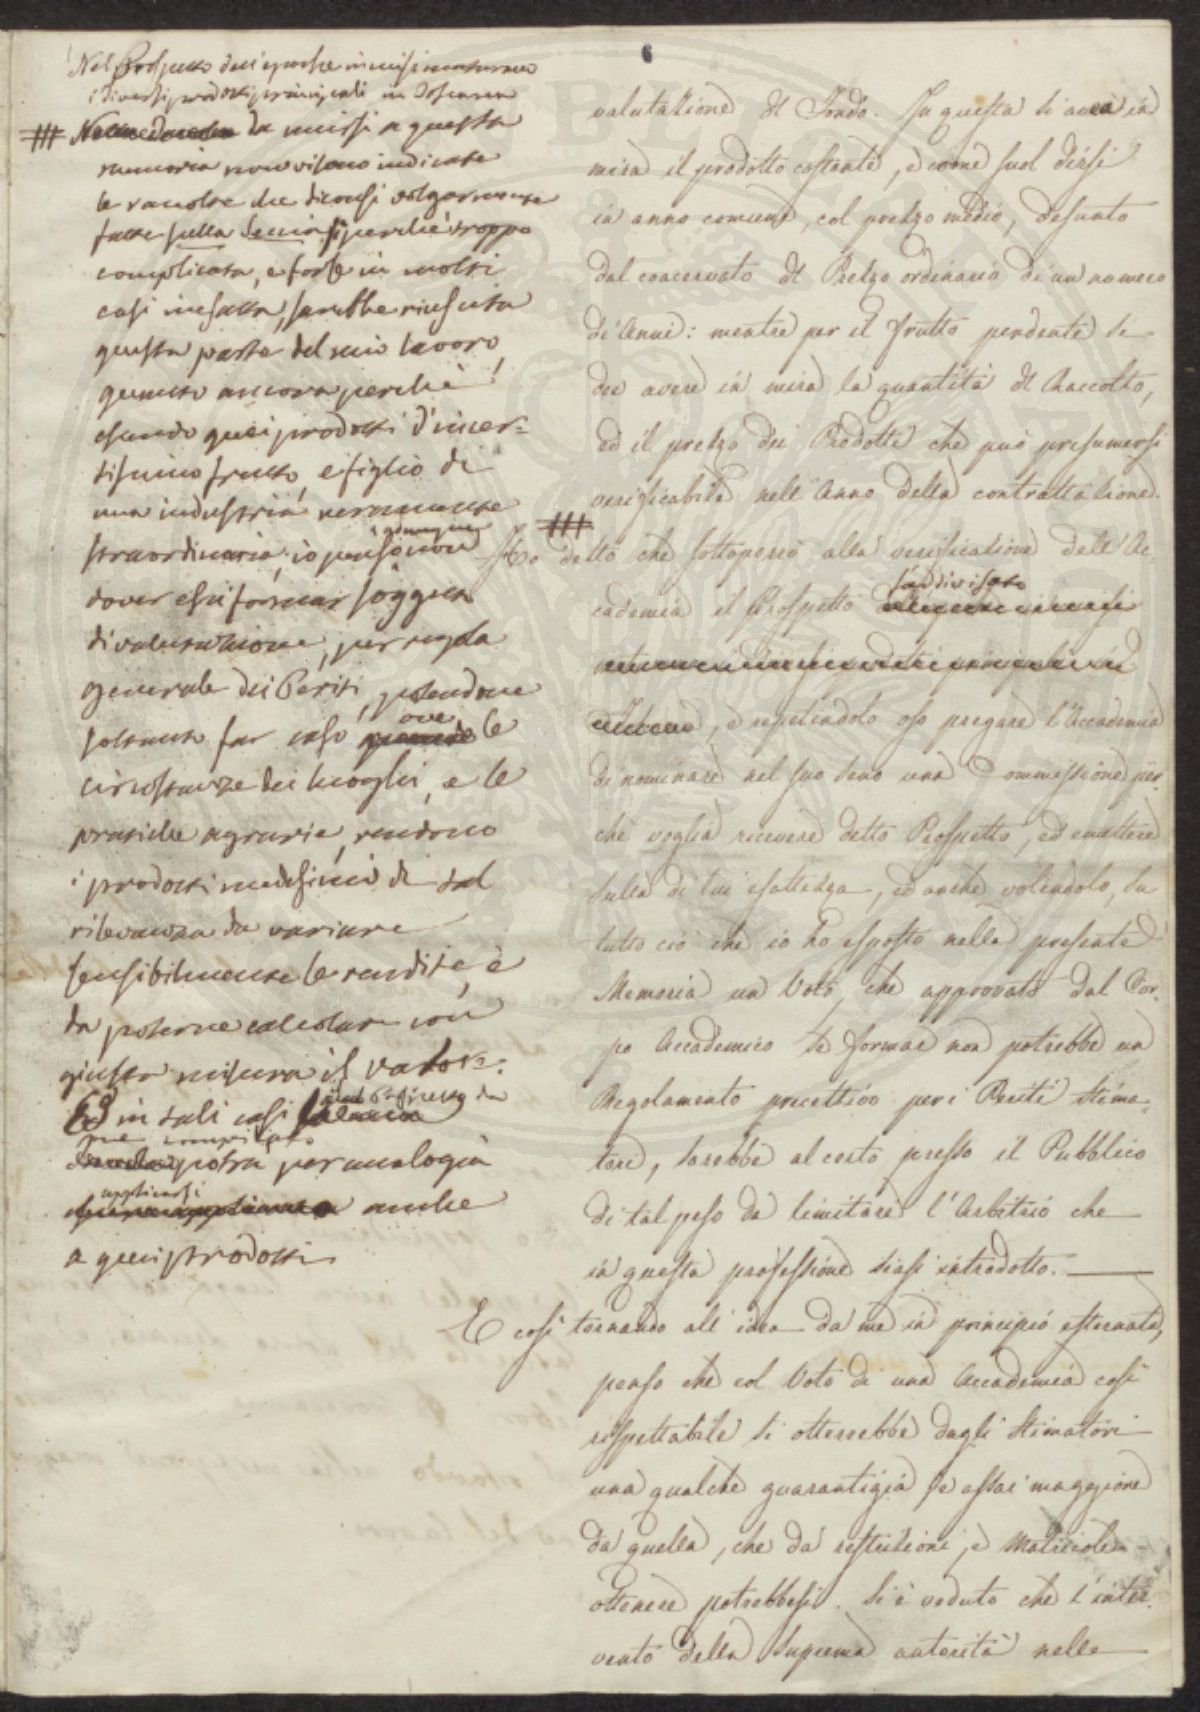 Nel Prospetto dell'epoche in cui si maturano
i diversi prodotti principali in Toscana
da unirsi a questa
memoria non vi sono indicate
le raccolte che diconsi volgarmente
fatte sulla Seccia, sì perchè troppo
complicata, e forse in molti
casi inesatta, sarebbe riuscita
questa parte del mio lavoro,
quanto ancora perchè
essendo quei prodotti d'incer-
tissimo frutto, e figlio di
una industria veramente
straordinaria, io penso adunque non
dover essi formar soggetto
di valutazione, per regola
generale dei Periti, potendone
soltanto far caso ove le
circostanze dei luoghi, e le
pratiche agrarie, rendono
i prodotti medesimi di tal
rilevanza da variare
sensibilmente le rendite, e
da poterne calcolare con
giusta misura il valore:
Ed in tali casi il Prospetto da
me compilato
potrà per analogia
applicarsi anche
a quei prodotti
6
valutazione del Fondo. In questa si avea in
mira il prodotto costante, e come suol dirsi
in anno comune, col prezzo medio, desunto
dal coacervato del Prezzo ordinario di un numero
di Anni: mentre per il frutto pendente si
dee avere in mira la quantità del Raccolto,
ed il prezzo dei Prodotti che può presumersi
verificabile nell'Anno della contrattazione.
Ho detto che sottoporrò alla verificazione dell'Ac-
cademia il Prospetto sundivisato
, e repetendolo oso pregare l'Accademia
di nominare nel suo seno una Commissione per-
chè voglia ricevere detto Prospetto, ed emettere
sulla di lui esattezza, ed anche volendolo, su
tutto ciò che io ho esposto nella presente
Memoria un Voto, che approvato dal Cor-
po Accademico se formar non potrebbe un
Regolamento precettivo per i Periti Stima-
tori, sarebbe al certo presso il Pubblico
di tal peso da limitare l'Arbitrio che
in questa professione siasi introdotto.
E così tornando all'idea da me in principio esternata,
penso che col Voto di una Accademia così
rispettabile si otterrebbe dagli Stimatori
una qualche guarantigia, e assai maggiore
da quella, che da restrizioni, e Matricole
ottenere potrebbesi. Si è veduto che l'inter-
vento della Suprema autorità nelle